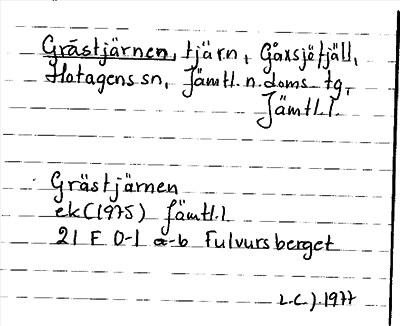 Gråstjärnen, tjärn, Gåxsjöfjäll,
Hotagens sn, Jämtl. n. doms. tg,
Jämtl. l.
Gråstjärnen
ek (1975) Jämtl. l
21 F 0-1 a-b Fulvursberget
1977